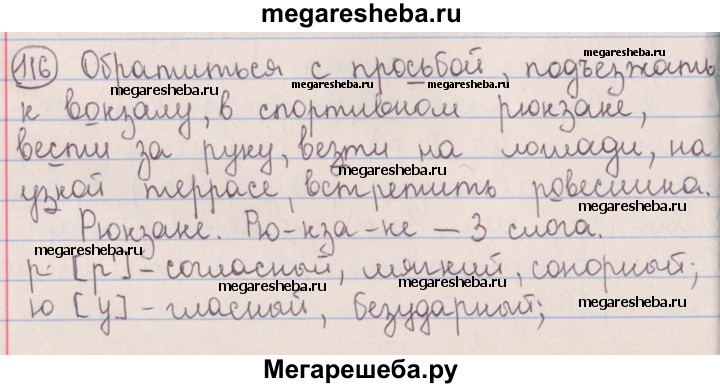 megaresheba.ru
116 Обратиться с просьбой, подъезжать
megaresheba.ru
megaresheba.ru
megaresheba.ru
megaresheba.ru
к вокзалу, в спортивном рюкзаке,
вести за руку, везти на лошади, на
megaresheba.ru
узкой террасе, встретить ровесника.
megaresheba.ru
Рюкзаке. Рю-кза-ке – 3 слога.
megaresheba.ru
megaresheba.ru
р - [р'] - согласный, мягкий, сонорный;
ю [у] - гласный, безударный;
megaresheba.ru
Мегарешеба.ру